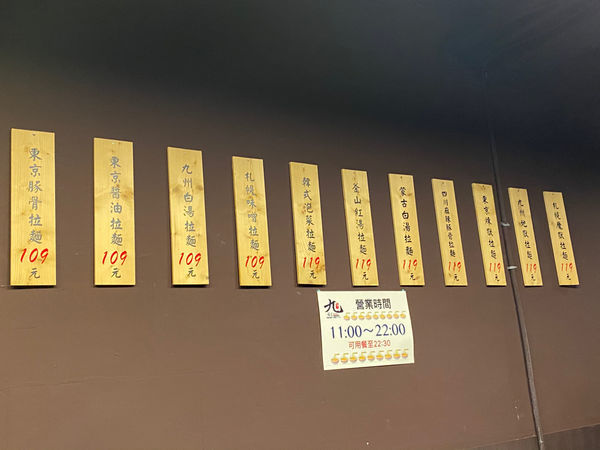 東京豚骨拉麵
109元
東京醬油拉麵
109元
九州白湯拉麵
109元
札幌味噌拉麵
109元
韓式泡菜拉麵
119元
釜山紅湯拉麵
119元
蒙古白湯拉麵
119元
四川麻辣豚骨拉麵
119元
東京燒肉拉麵
119元
九州地獄拉麵
119元
札幌魔獄拉麵
119元
九
營業時間
11:00～22:00
可用餐至22:30